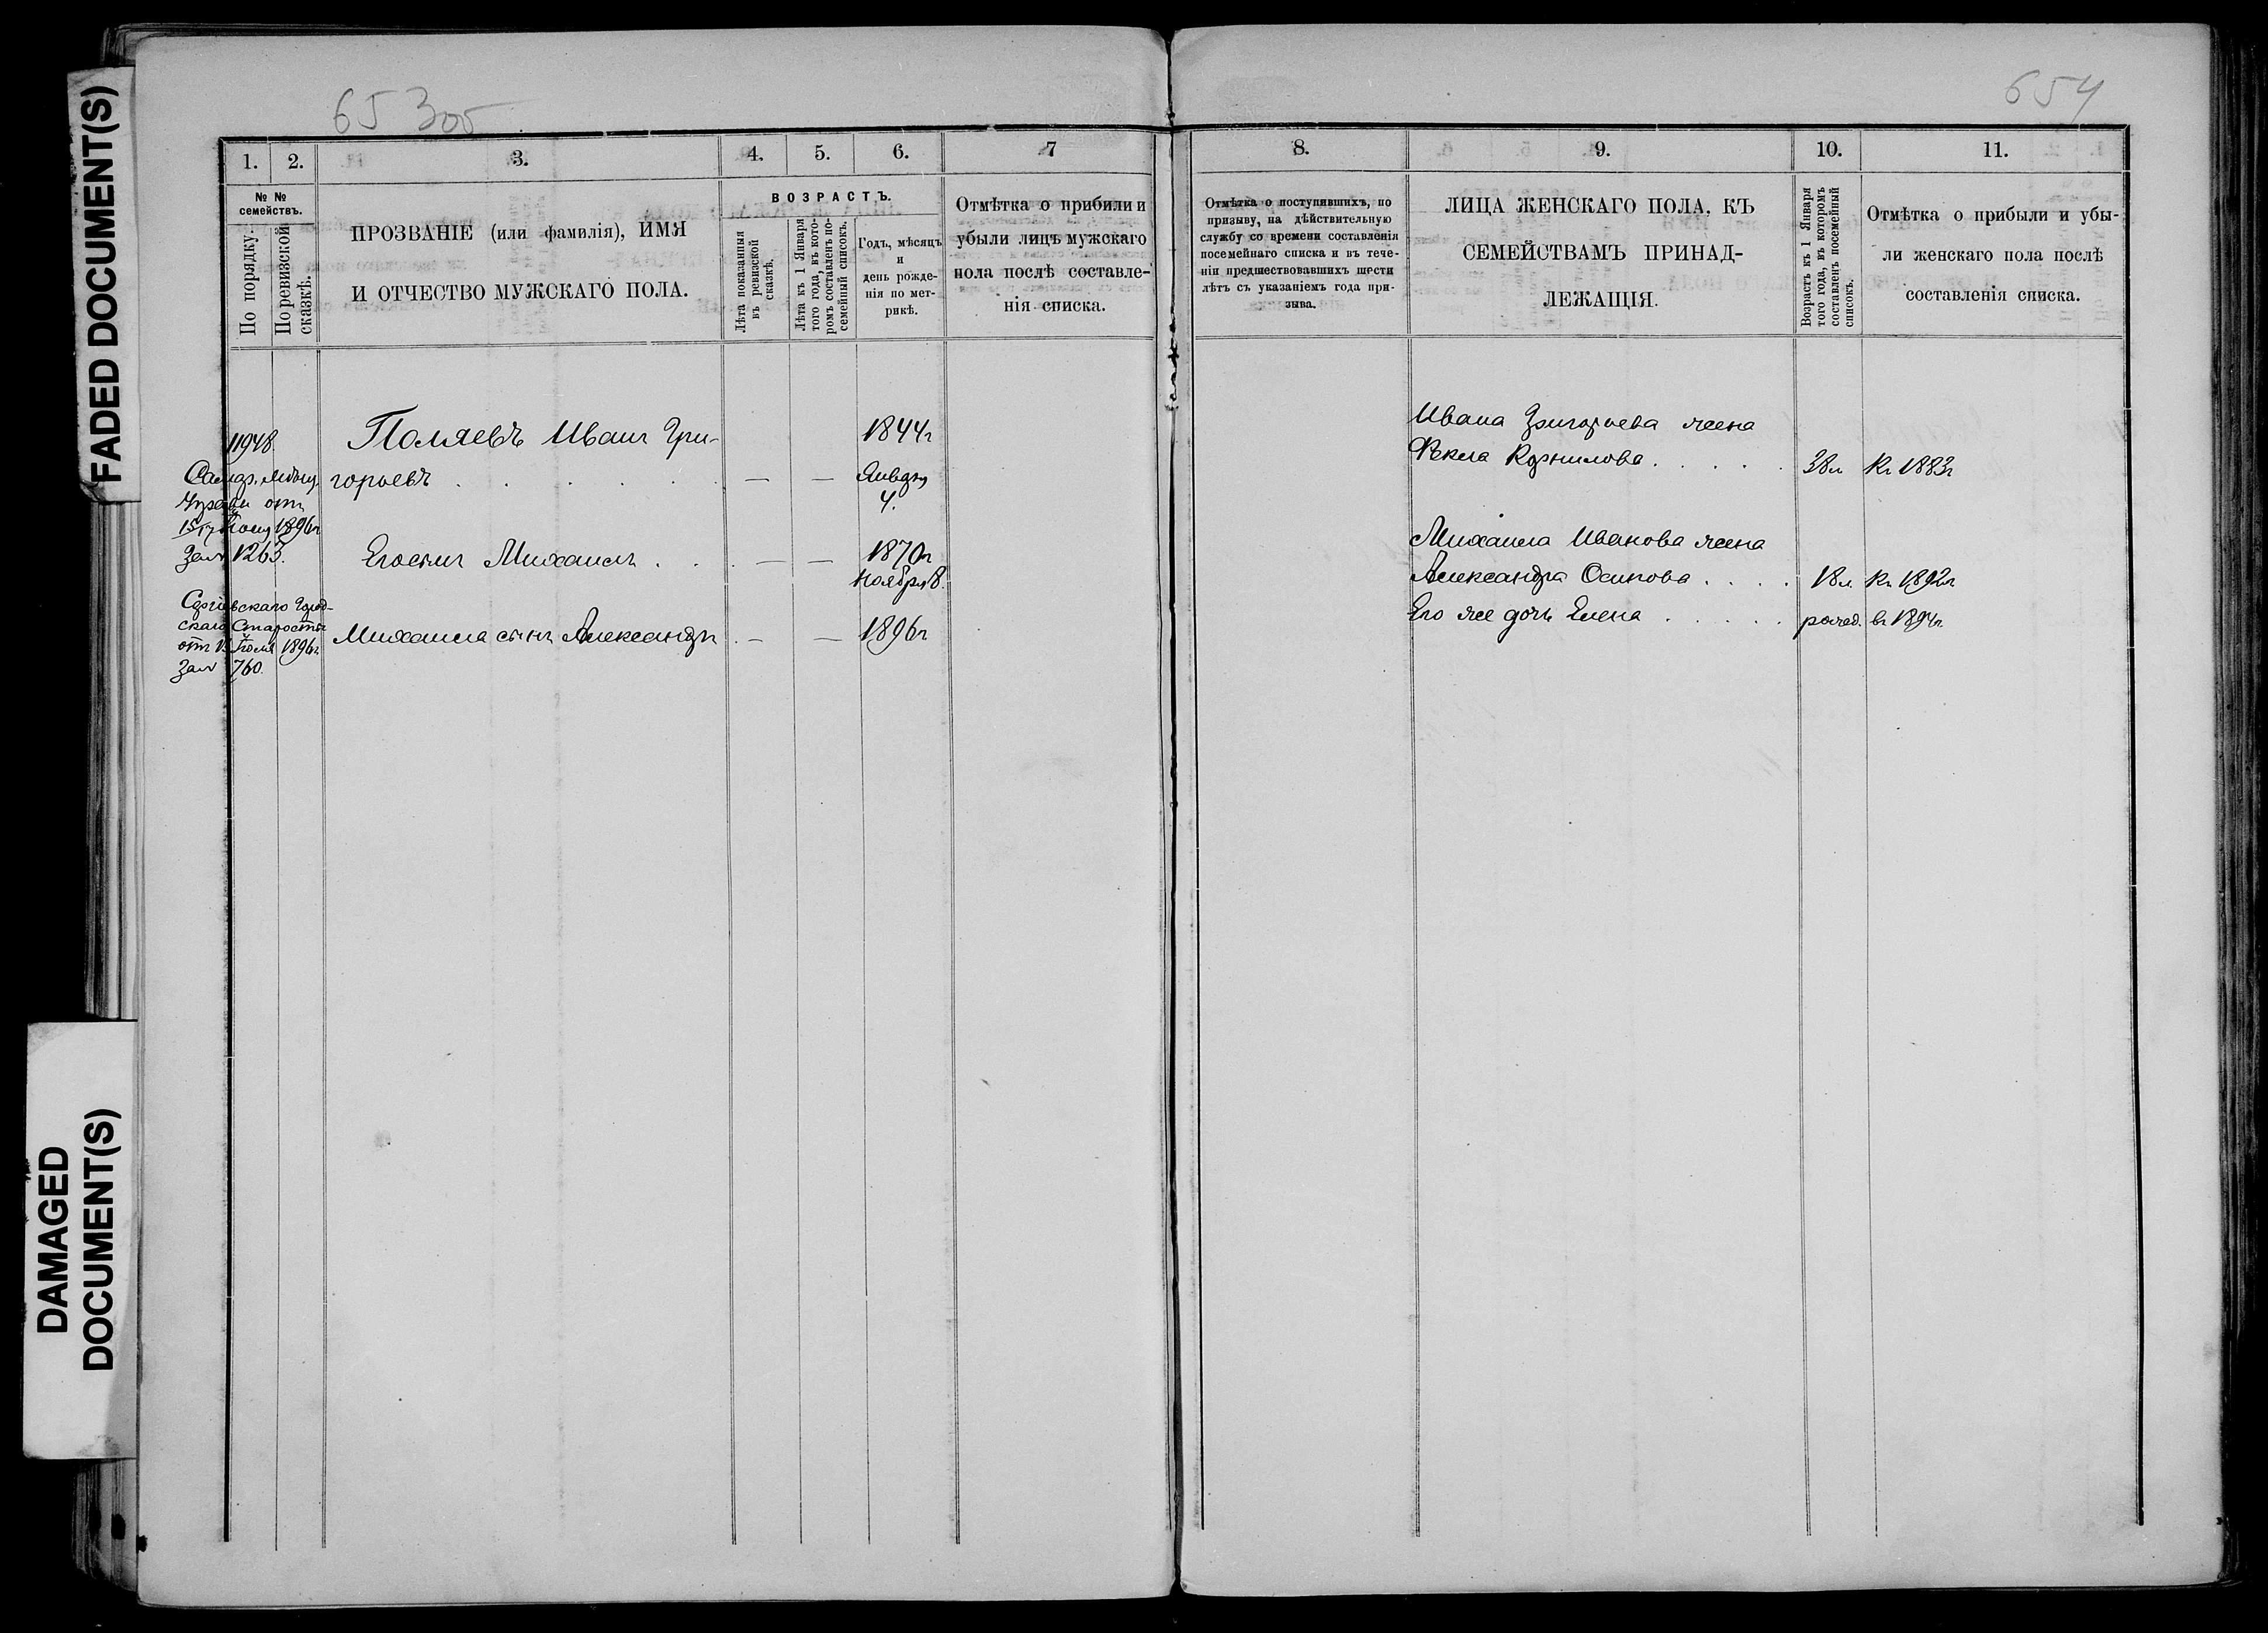 FADED DOCUMENT(S)
DAMAGED
DOCUMENT(S)
653об
1.
2.
3.
4.
5.
6.
7
№ №
семействъ.
По порядку.
По ревизской
сказкѣ.
ПРОЗВАНІЕ (или фамилія), ИМЯ
И ОТЧЕСТВО МУЖСКАГО ПОЛА.
ВОЗРАСТЪ.
Лѣта показанныя
въ ревизской
сказкѣ.
Лѣта къ 1 Января
того года, въ кото-
ромъ составленъ по-
семейный списокъ.
Годъ, мѣсяцъ
и
день рожде-
нія по мет-
рикѣ.
Отмѣтка о прибыли и
убыли лицъ мужскаго
пола послѣ составле-
нія списка.
11948.
Самар. Мѣщ.
Управы отъ
15 1896г
за № 1263.
Сергіевскаго Город-
скаго Старосты
отъ Іюля 1896г.
за № 760.
Поляевъ Иванъ Гри-
горьевъ . . . . . — — 
1844г
Январь
4.
Его сынъ Михаилъ . . . — —
1870г
Ноября 8.
Михаила сынъ Александръ . — — 1896г
654
8.
9.
10.
11.
Отмѣтка о поступившихъ, по
призыву, на дѣйствительную
службу со времени составленія
посемейнаго списка и въ тече-
ніи предшествовавшихъ шести
лѣтъ съ указаніемъ года при-
зыва.
ЛИЦА ЖЕНСКАГО ПОЛА, КЪ
СЕМЕЙСТВАМЪ ПРИНАД-
ЛЕЖАЩІЯ.
Возрастъ къ 1 Января
того года, въ которомъ
составленъ посемейный
списокъ.
Отмѣтка о прибыли и убы-
ли женскаго пола послѣ
составленія списка.
Ивана Григорьева жена
Ѳекла Корнилова . . . . . 38л къ 1883г
Михаила Иванова жена
Александра Осипова . . . . 18л къ 1892г
Его же дочь Елена . . . . . рожд. въ 1894г.